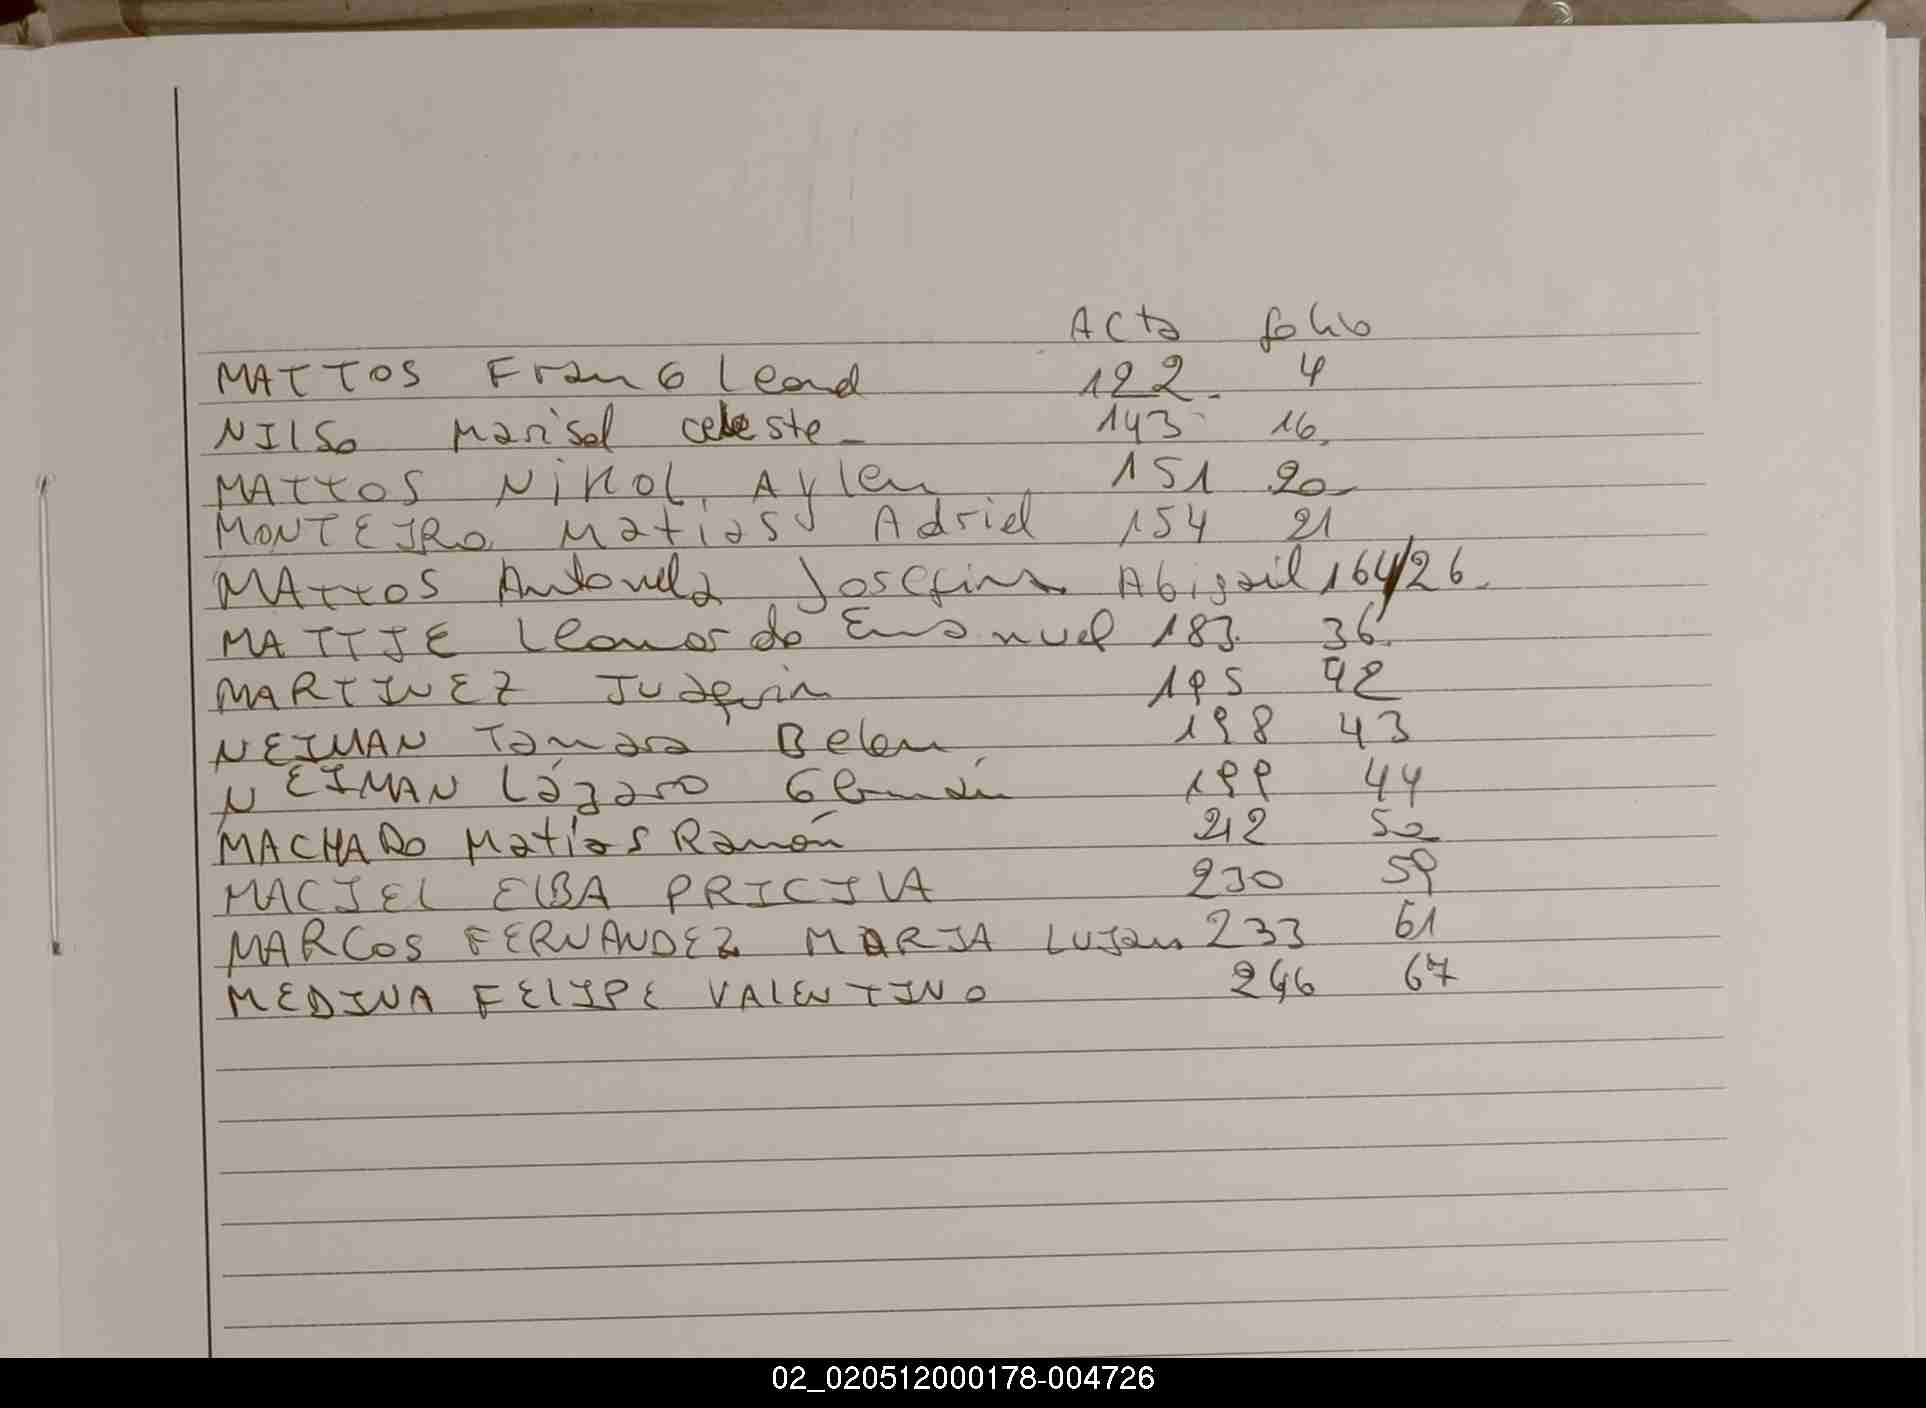 Acta folio
MATTOS Fran G Leand 122 4
NILSo Marisol celeste 143 16
MATTOS NiKOL Aylen 151 20
MONTEIRO Matias Adriel 154 21
MATTOS Antonela Josefina Abigail 164/26
MATTJE Leonardo Emanuel 183 36
MARTINEZ Juaquin 195 42
NEIMAN Tamara Belen 198 43
NEIMAN Lázaro Germán 199 44
MACHADO Matías Ramón 212 52
MACIEL ELBA PRICILA 230 59
MARCOS FERNANDEZ MARIA Lujan 233 61
MEDINA FELIPE VALENTINO 246 67
02_020512000178-004726